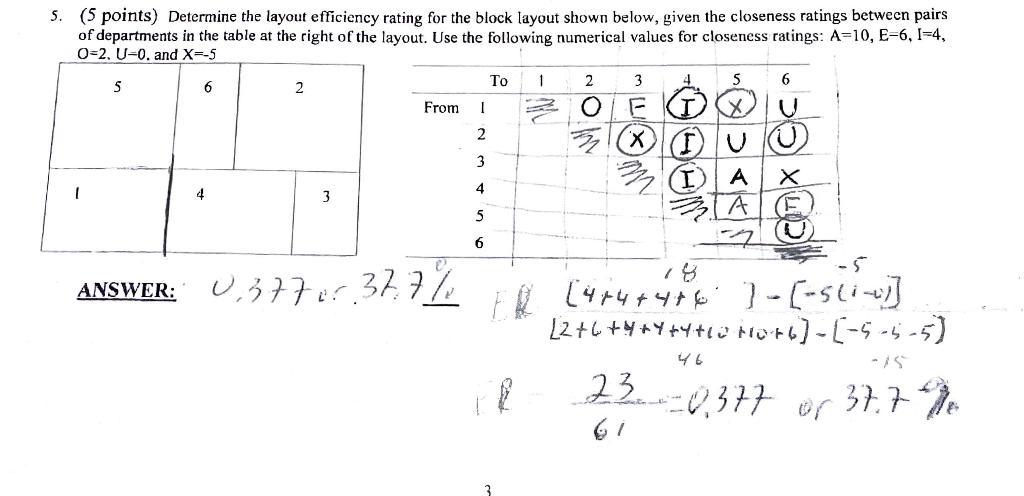 5. (5 points) Determine the layout efficiency rating for the block layout shown below, given the closeness ratings between pairs
of departments in the table at the right of the layout. Use the following numerical values for closeness ratings: A=10, E=6, I=4,
O=2, U=0, and X=-5
5 6 2
1 4 3
To 1 2 3 4 5 6
From 1 O E I X U
2 X I U U
3 I A X
4 A E
5 U
6
ANSWER: 0.377 or 37.7%
18 -5
ER [4+4+4+6 ] - [-5(1-0)]
[2+6+4+4+4+10+10+6] - [-5-5-5]
46 -15
ER = 23 = 0.377 or 37.7%
61
3